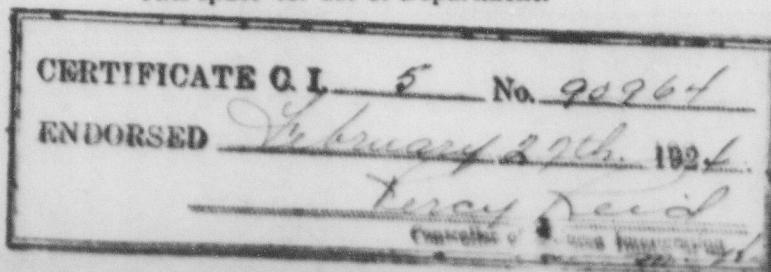 CERTIFICATE C. I. 5 No. 90964
ENDORSED February 27th. 1924.
Percy Reid